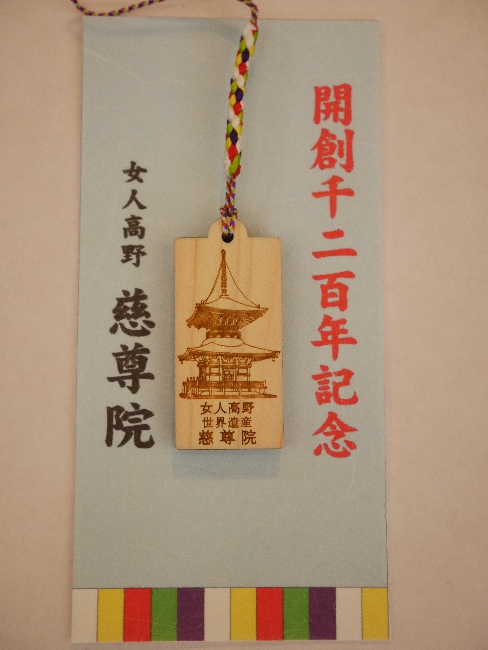 開創千二百年記念
女人高野 慈尊院
女人高野
世界遺産
慈尊院